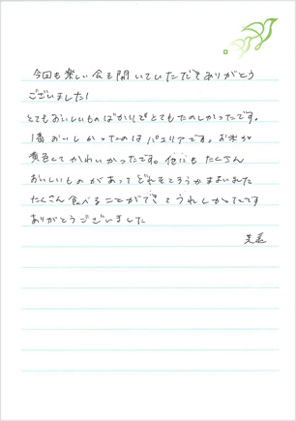 今回も楽しい会を開いていただきありがとう
ございました!
とてもおいしいものばかりでとてもたのしかったです。
1番おいしかったのはパエリアです。お米が
黄色くてかわいかったです。他にもたくさん
おいしいものがあってどれをとろうかまよいました
たくさん食べることができてうれしかったです
ありがとうございました